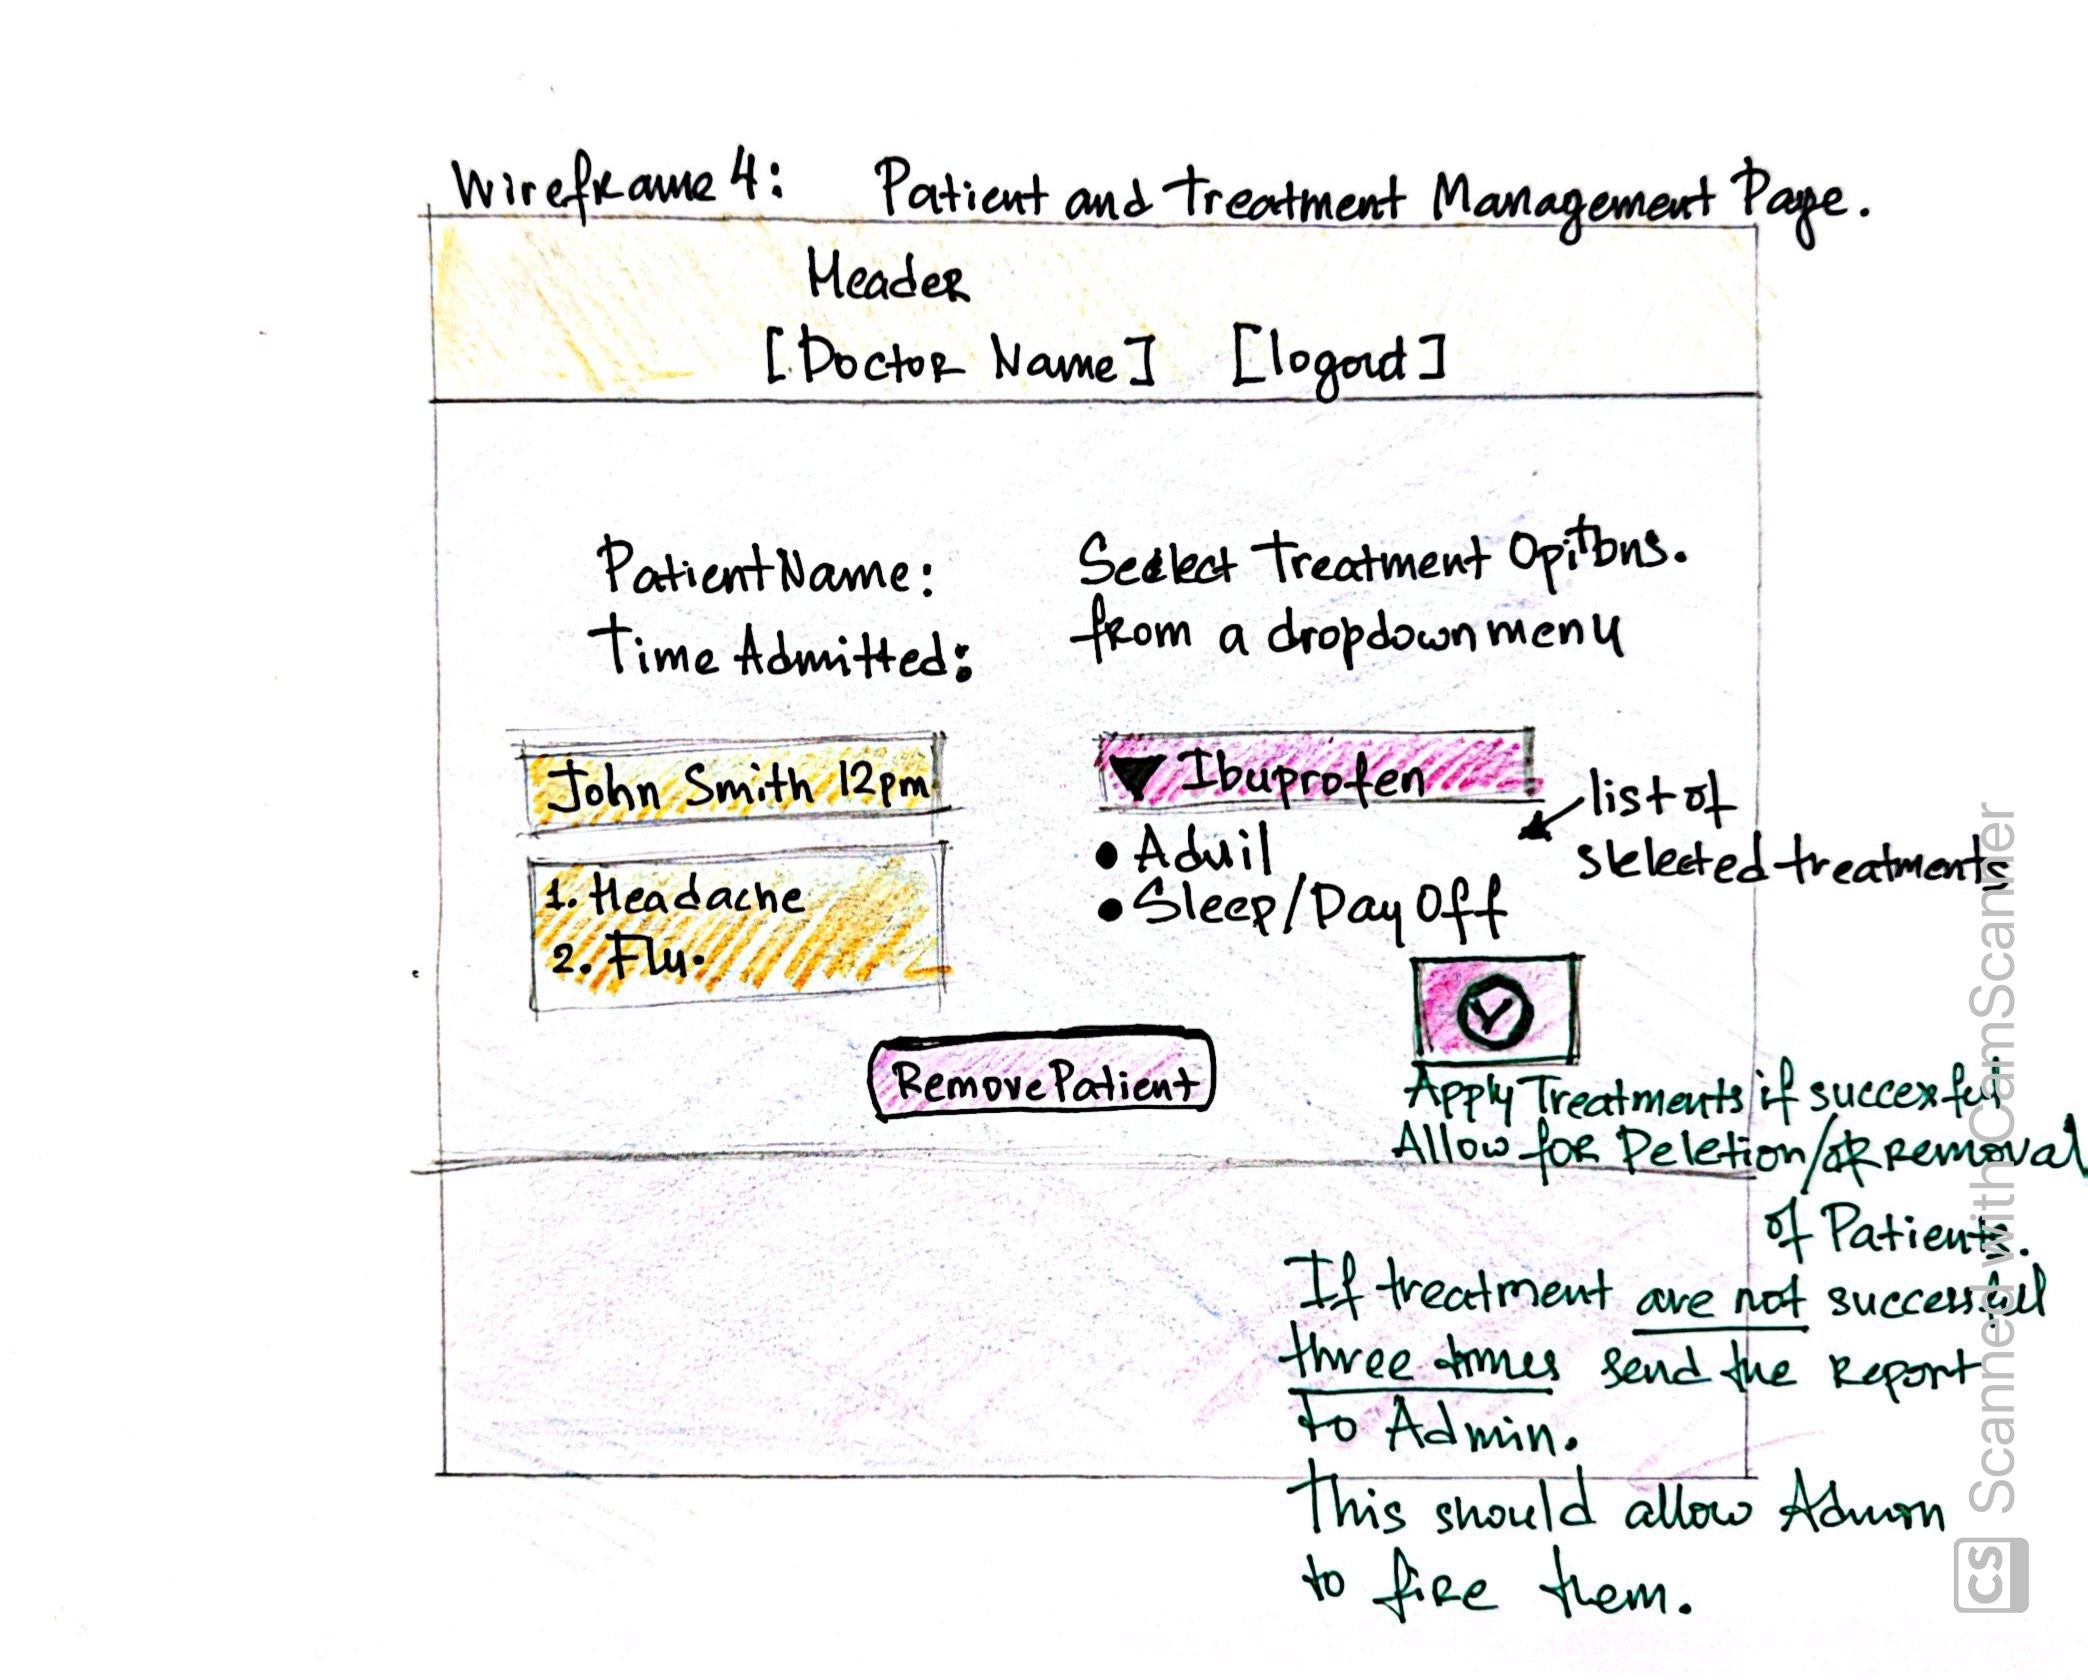 Wireframe 4: Patient and Treatment Management Page.
Header
[Doctor Name] [logout]
Patient Name:
Time Admitted:
Seclect Treatment Opitons.
from a dropdown menu
John Smith 12pm
1. Headache
2. Flu.
Ibuprofen
• Advil
• Sleep/Day Off
list of
slelected treatments
Remove Patient
Apply Treatments if succexful
Allow for Deletion/or removal
of Patients.
If treatment are not successful
three times send the report
to Admin.
This should allow Admin
to fire them.
CS Scanned with CamScanner